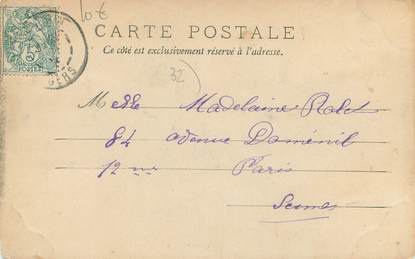 10 €
CARTE POSTALE
Ce côté est exclusivement réservé à l'adresse.
GERS
32
Melle Madeleine
84 avenue Doménil
12me Paris
Seine